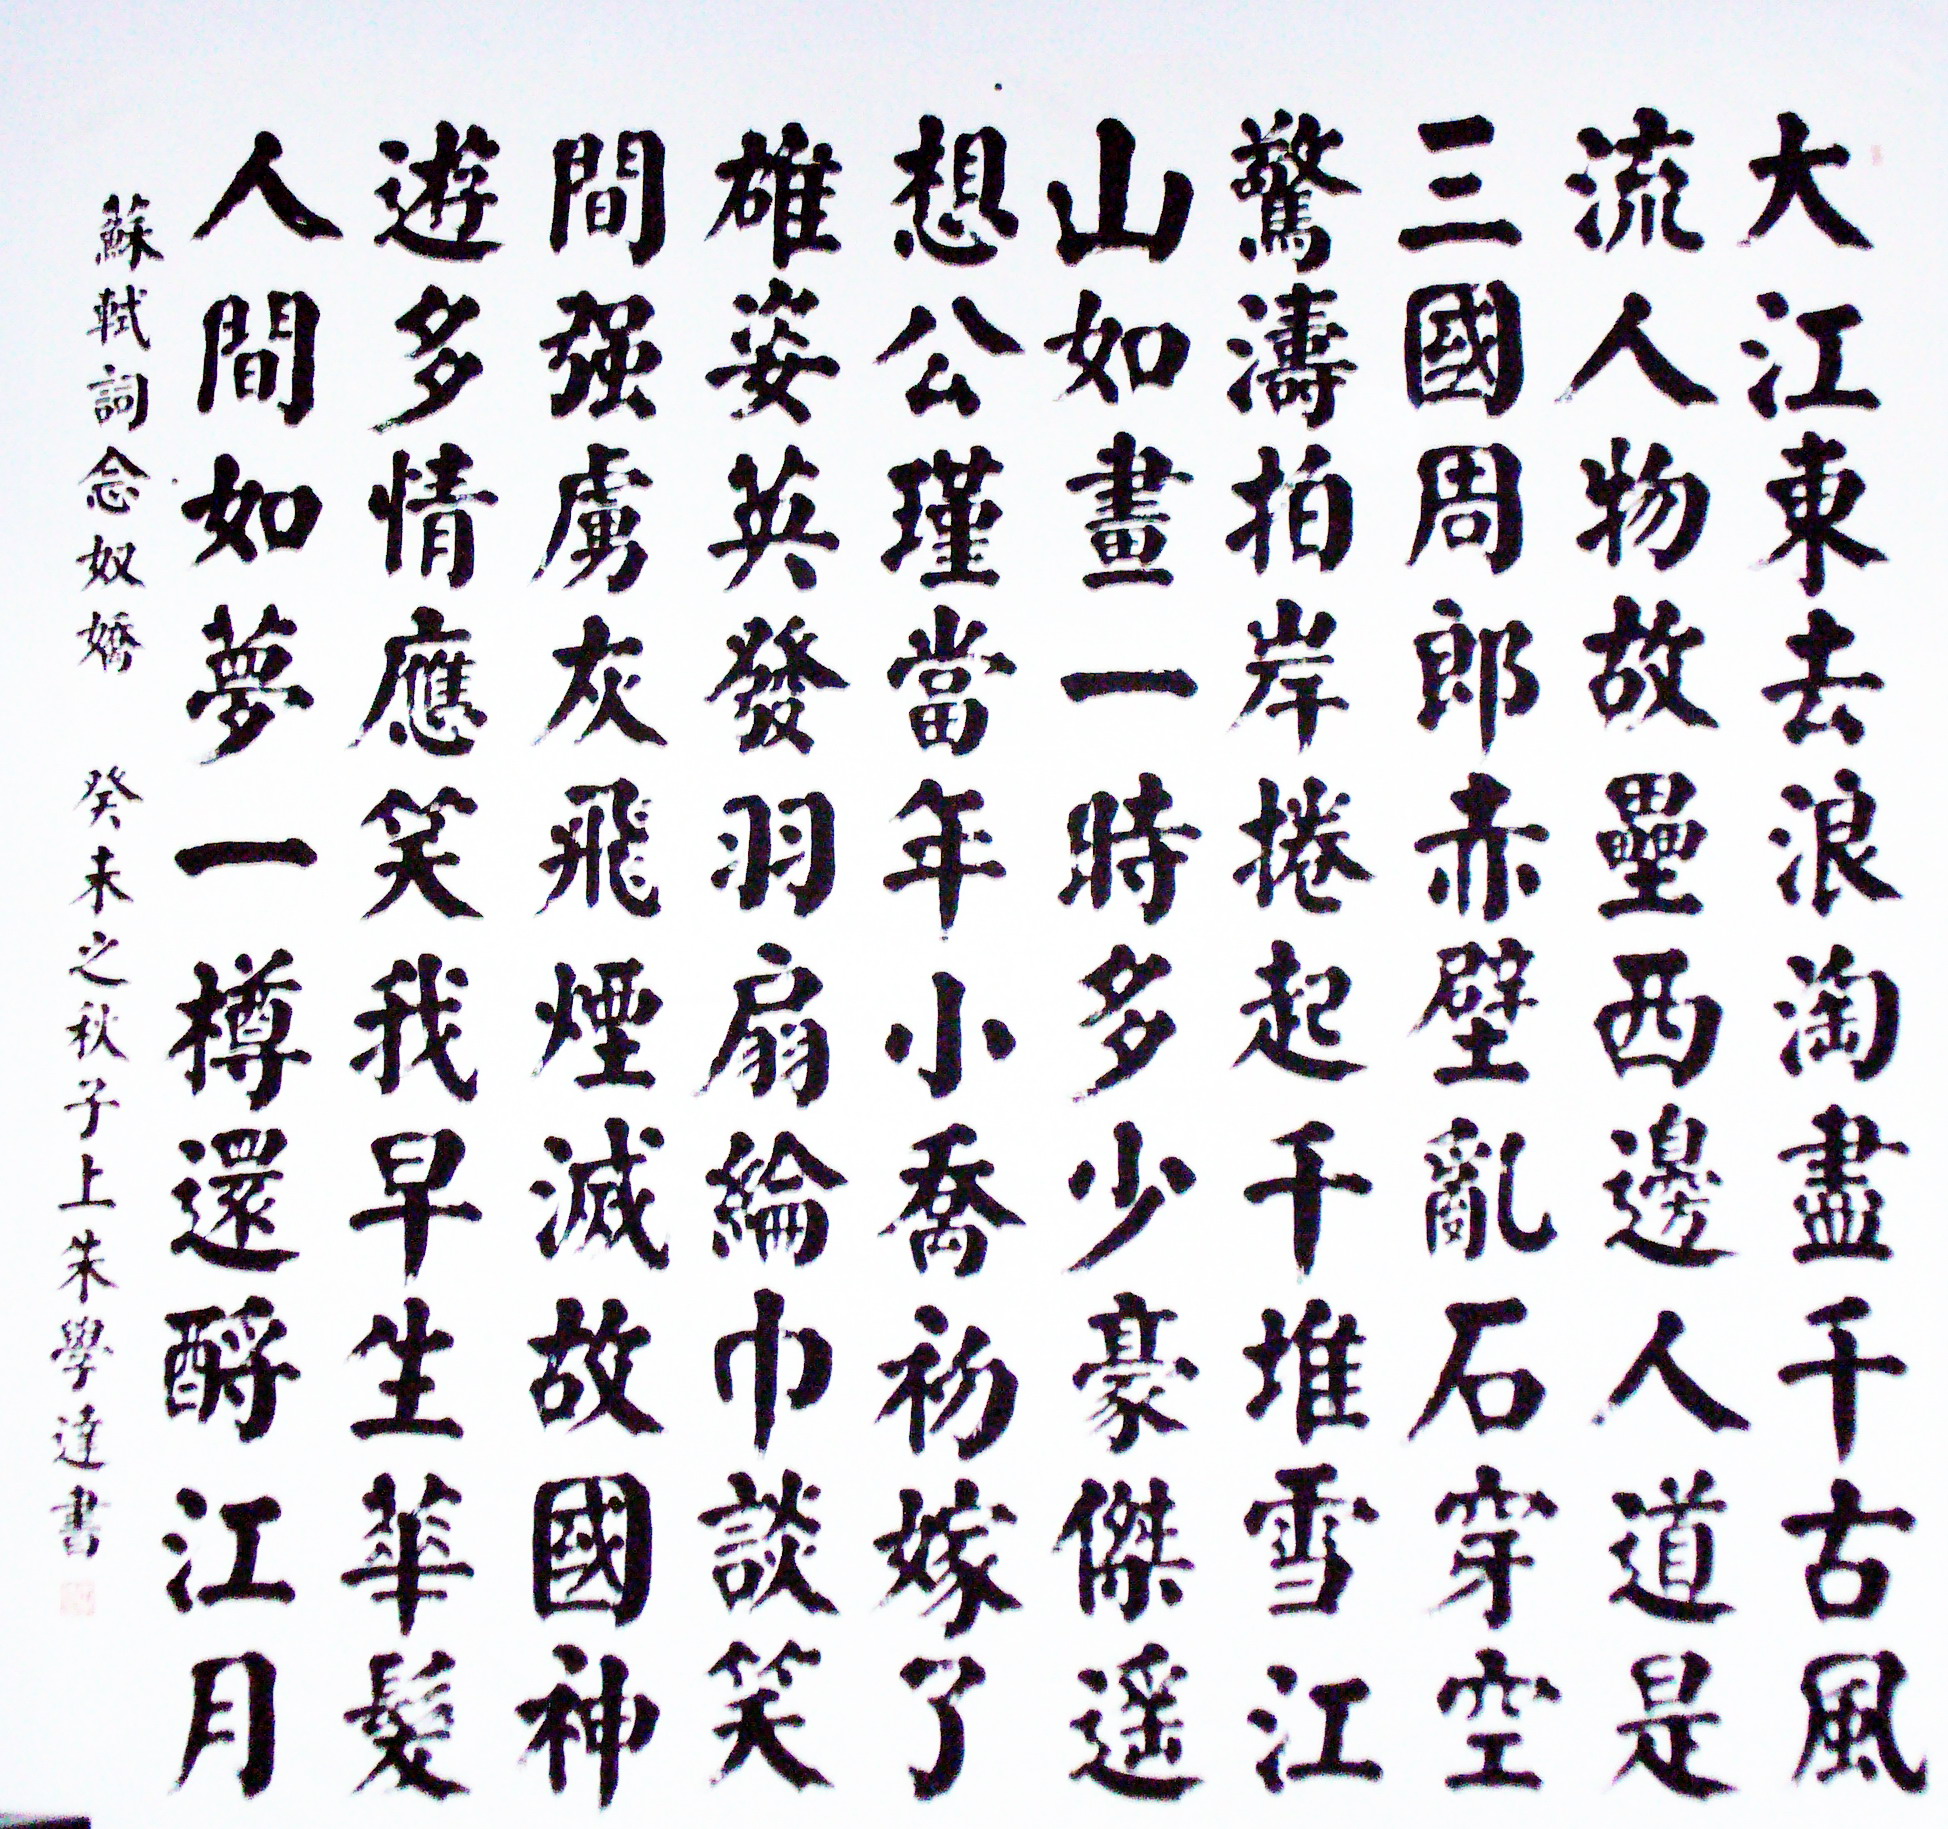 大江東去浪淘盡千古風
流人物故壘西邊人道是
三國周郎赤壁亂石穿空
驚濤拍岸捲起千堆雪江
山如畫一時多少豪傑遥
想公瑾當年小喬初嫁了
雄姿英發羽扇綸巾談笑
間强虜灰飛煙滅故國神
遊多情應笑我早生華髮
人間如夢一樽還酹江月
蘇軾詞念奴嬌 癸未之秋子上朱學達書